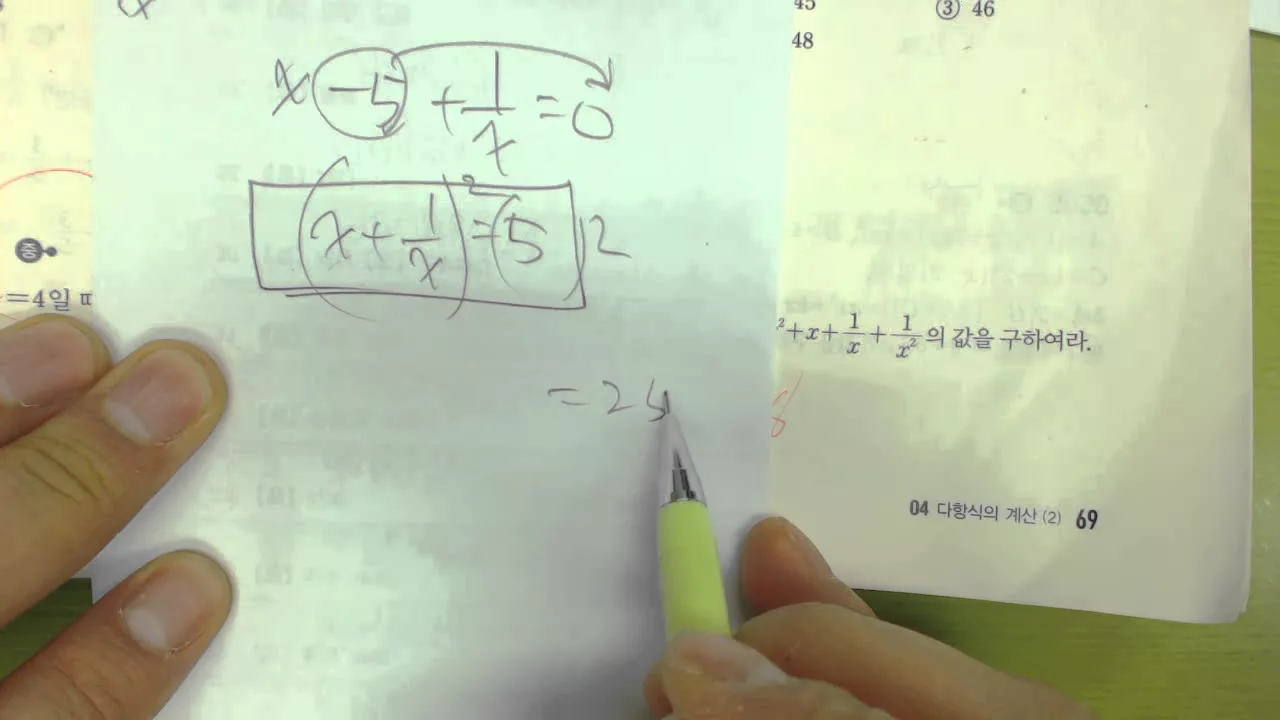 45
③ 46
48
x - 5 + 1/x = 0
(x + 1/x)² = (5)²
중
=4일 때
²+x+1/x+1/x²의 값을 구하여라.
= 25
8
04 다항식의 계산 (2) 69